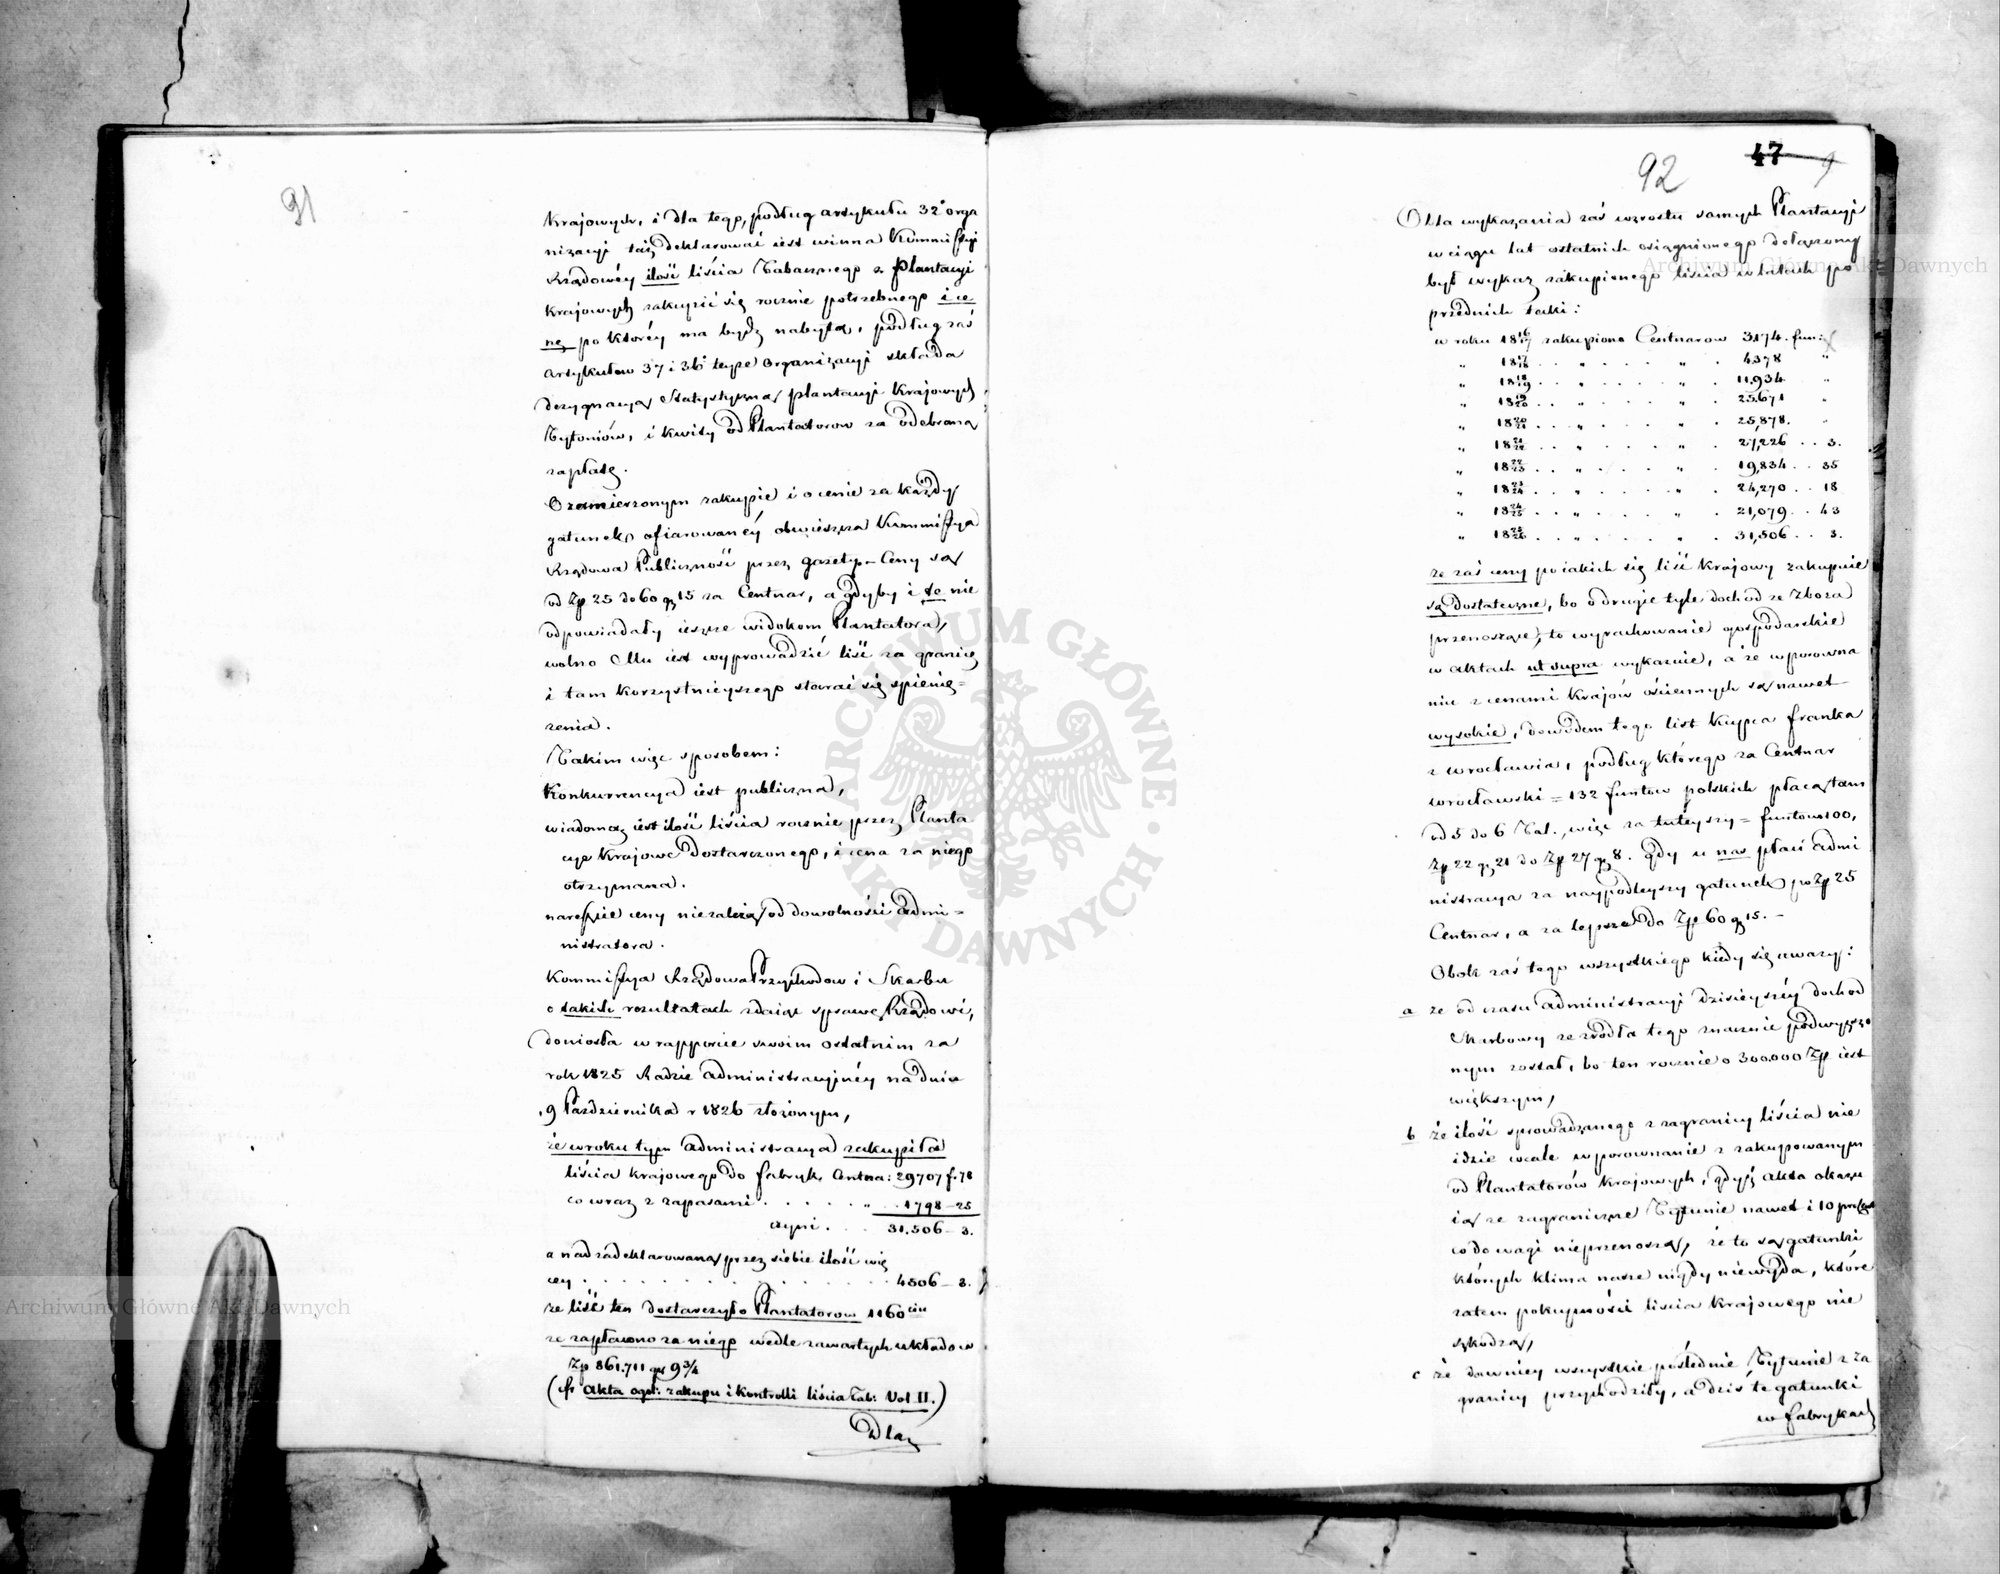 91
Krajowych, i dla tego, podług artykułu 32° orga
nizacyi taż deklarować iest winna Kommissyi
Rządowéy ilość liścia Tabacznego z Plantacyi
Krajowych zakupić się rocznie potrzebnego i ce
nę po któréy ma bydź nabyta, podług zaś
artykułów 37 i 36° teyże organizacyi składa
dezygnacyą Statystyczną plantacyi Krajowych
Tytoniów, i kwity od Plantatorow za odebraną
zapłatę.
O zamierzonym zakupie i o cenie za każdy
gatunek ofiarowanéy obwieszcza Kommissya
Rządowa Publiczność przez gazety – Ceny są
od Zp 25 do 60 gr 15 za Centnar, a gdyby i te nie
odpowiadały ieszcze widokom Plantatora,
wolno Mu iest wyprowadzić liść za granicę
i tam korzystnieyszego starać się spienię=
żenia.
Takim więc sposobem:
Konkurrencya iest publiczna,
wiadomą iest ilość liścia rocznie przez Planta
cye Krajowe dostarczonego, i cena za niego
otrzymana.
nareszcie ceny niezależą od dowolności admi=
nistratora.
Kommissya Rządowa Przychodow i Skarbu
o takich rezultatach zdaiąc sprawę Rządowi,
doniosła w rapporcie swoim ostatnim za
rok 1825 Radzie administracyjnéy na dniu
9 Października r 1826 złożonym,
że w roku tym administracya zakupiła
liścia krajowego do fabryk, Centna: 29707 f. 78
co wraz z zapasami . . . . . " . 1798 – 25
czyni . . . 31,506 – 3.
a nad zadeklarowaną przez siebie ilość wię
cey . . . . . . . . . . . . . . 4506 – 3.
że liść ten dostarczyło Plantatorow 1160ciu
że zapłacono za niego wedle zawartych układow
Zp 861.711 gr 9 3/4
(fr Akta ogol: zakupu i kontrolli liścia Tab: Vol II.)
Dla
92
47
9
Dla wykazania zaś wzrostu samych Plantacyi
w ciągu lat ostatnich osiągnionego dołączony
był wykaz zakupionego liścia w latach po
przednich taki:
w roku 18 16/17 zakupiono Centnarow 3174. fun:
" 18 17/18 . . " . . . . " . 4378 "
" 18 18/19 . . " . . . . " . 11,934 "
" 18 19/20 . . " . . . . " . 25.671 "
" 18 20/21 . . " . . . . " . 25,878. "
" 18 21/22 . . " . . . . " . 27,226 . . 3.
" 18 22/23 . . " . . . . " . 19,834 . . 35
" 18 23/24 . . " . . . . " . 24,270 . . 18
" 18 24/25 . . " . . . . " . 21,079 . . 43
" 18 25/26 . . " . . . . " . 31,506 . . 3.
że zaś ceny po iakich się liść Krajowy zakupuie
są dostateczne, bo o drugie tyle dochod ze zboża
przenoszące, to wyrachowanie gospodarskie
w aktach ut supra wykazuie, a że w porowna
niu z cenami Krajów ościennych są nawet
wysokie, dowodem tego list Kupca Franka
z Wrocławia, podług którego za Centnar
wrocławski = 132 funtow polskich płacą tam
od 5 do 6 Tal., więc za tuteyszy = funtow 100,
Zp 22 gr 21 do Zp 27 gr 8. gdy u nas płaci admi
nistracya za naypodleyszy gatunek po Zp 25
Centnar, a za lepsze do Zp 60 gr 15. –
Obok zaś tego wszystkiego kiedy się uważy:
a że od czasu administracyi dzisieyszéy dochod
Skarbowy ze źrodła tego znacznie podwyższo
nym został, bo ten rocznie o 300.000 Zp iest
większym,
b że ilość sprowadzanego z zagranicy liścia nie
idzie wcale w porownanie z zakupowanym
od Plantatorów Krajowych, gdyż akta okazu
ią że zagraniczne Tytunie nawet i 10 procent
co do wagi nieprzenoszą, że to są gatunki
których klima nasze nigdy niewyda, które
zatem pokupności liścia Krajowego nie
szkodzą,
c że dawniey wszystkie poślednie Tytunie z za
granicy przychodziły, a dziś te gatunki
w fabrykach
ARCHIWUM GŁÓWNE AKT DAWNYCH
Archiwum Główne Akt Dawnych
Archiwum Główne Akt Dawnych